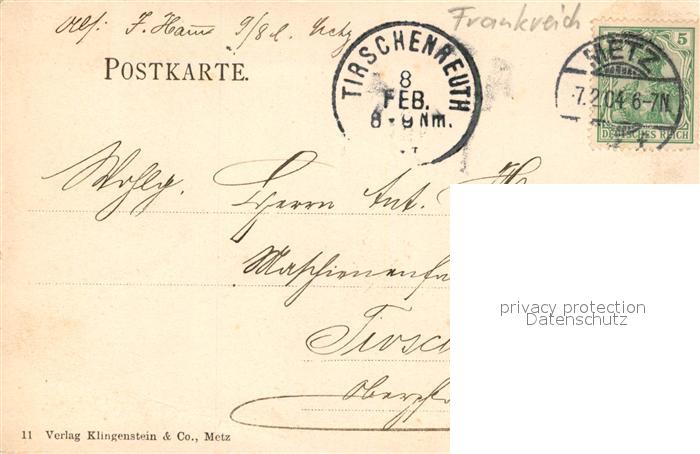 Frankreich
POSTKARTE.
TIRSCHENREUTH
8
FEB.
8-9 Nm.
5
METZ
7.2.04 6-7N.
DEUTSCHES REICH
Wohlg.
Herrn Ant.
Maschienenfa
Tirsc
Oberpf
privacy protection
Datenschutz
11 Verlag Klingenstein & Co., Metz